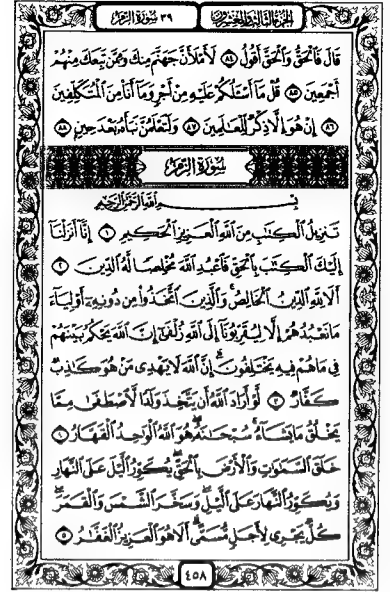 الجزء الثالث والعشرون
٣٩ سورة الزمر
قَالَ فَالْحَقُّ وَالْحَقَّ أَقُولُ ٨٤ لَأَمْلَأَنَّ جَهَنَّمَ مِنكَ وَمِمَّن تَبِعَكَ مِنْهُمْ
أَجْمَعِينَ ٨٥ قُلْ مَا أَسْـَٔلُكُمْ عَلَيْهِ مِنْ أَجْرٍ وَمَا أَنَا۠ مِنَ الْمُتَكَلِّفِينَ
٨٦ إِنْ هُوَ إِلَّا ذِكْرٌ لِّلْعَالَمِينَ ٨٧ وَلَتَعْلَمُنَّ نَبَأَهُ بَعْدَ حِينٍ ٨٨
سُورَةُ الزُّمَر
بِسْمِ اللَّهِ الرَّحْمَٰنِ الرَّحِيمِ
تَنزِيلُ الْكِتَابِ مِنَ اللَّهِ الْعَزِيزِ الْحَكِيمِ ١ إِنَّا أَنزَلْنَا
إِلَيْكَ الْكِتَابَ بِالْحَقِّ فَاعْبُدِ اللَّهَ مُخْلِصًا لَّهُ الدِّينَ ٢
أَلَا لِلَّهِ الدِّينُ الْخَالِصُ ۚ وَالَّذِينَ اتَّخَذُوا مِن دُونِهِ أَوْلِيَاءَ
مَا نَعْبُدُهُمْ إِلَّا لِيُقَرِّبُونَا إِلَى اللَّهِ زُلْفَىٰ إِنَّ اللَّهَ يَحْكُمُ بَيْنَهُمْ
فِي مَا هُمْ فِيهِ يَخْتَلِفُونَ ۗ إِنَّ اللَّهَ لَا يَهْدِي مَنْ هُوَ كَاذِبٌ
كَفَّارٌ ٣ لَّوْ أَرَادَ اللَّهُ أَن يَتَّخِذَ وَلَدًا لَّاصْطَفَىٰ مِمَّا
يَخْلُقُ مَا يَشَاءُ ۚ سُبْحَانَهُ ۖ هُوَ اللَّهُ الْوَاحِدُ الْقَهَّارُ ٤
خَلَقَ السَّمَاوَاتِ وَالْأَرْضَ بِالْحَقِّ ۖ يُكَوِّرُ اللَّيْلَ عَلَى النَّهَارِ
وَيُكَوِّرُ النَّهَارَ عَلَى اللَّيْلِ ۖ وَسَخَّرَ الشَّمْسَ وَالْقَمَرَ ۖ
كُلٌّ يَجْرِي لِأَجَلٍ مُّسَمًّى ۗ أَلَا هُوَ الْعَزِيزُ الْغَفَّارُ ٥
٤٥٨